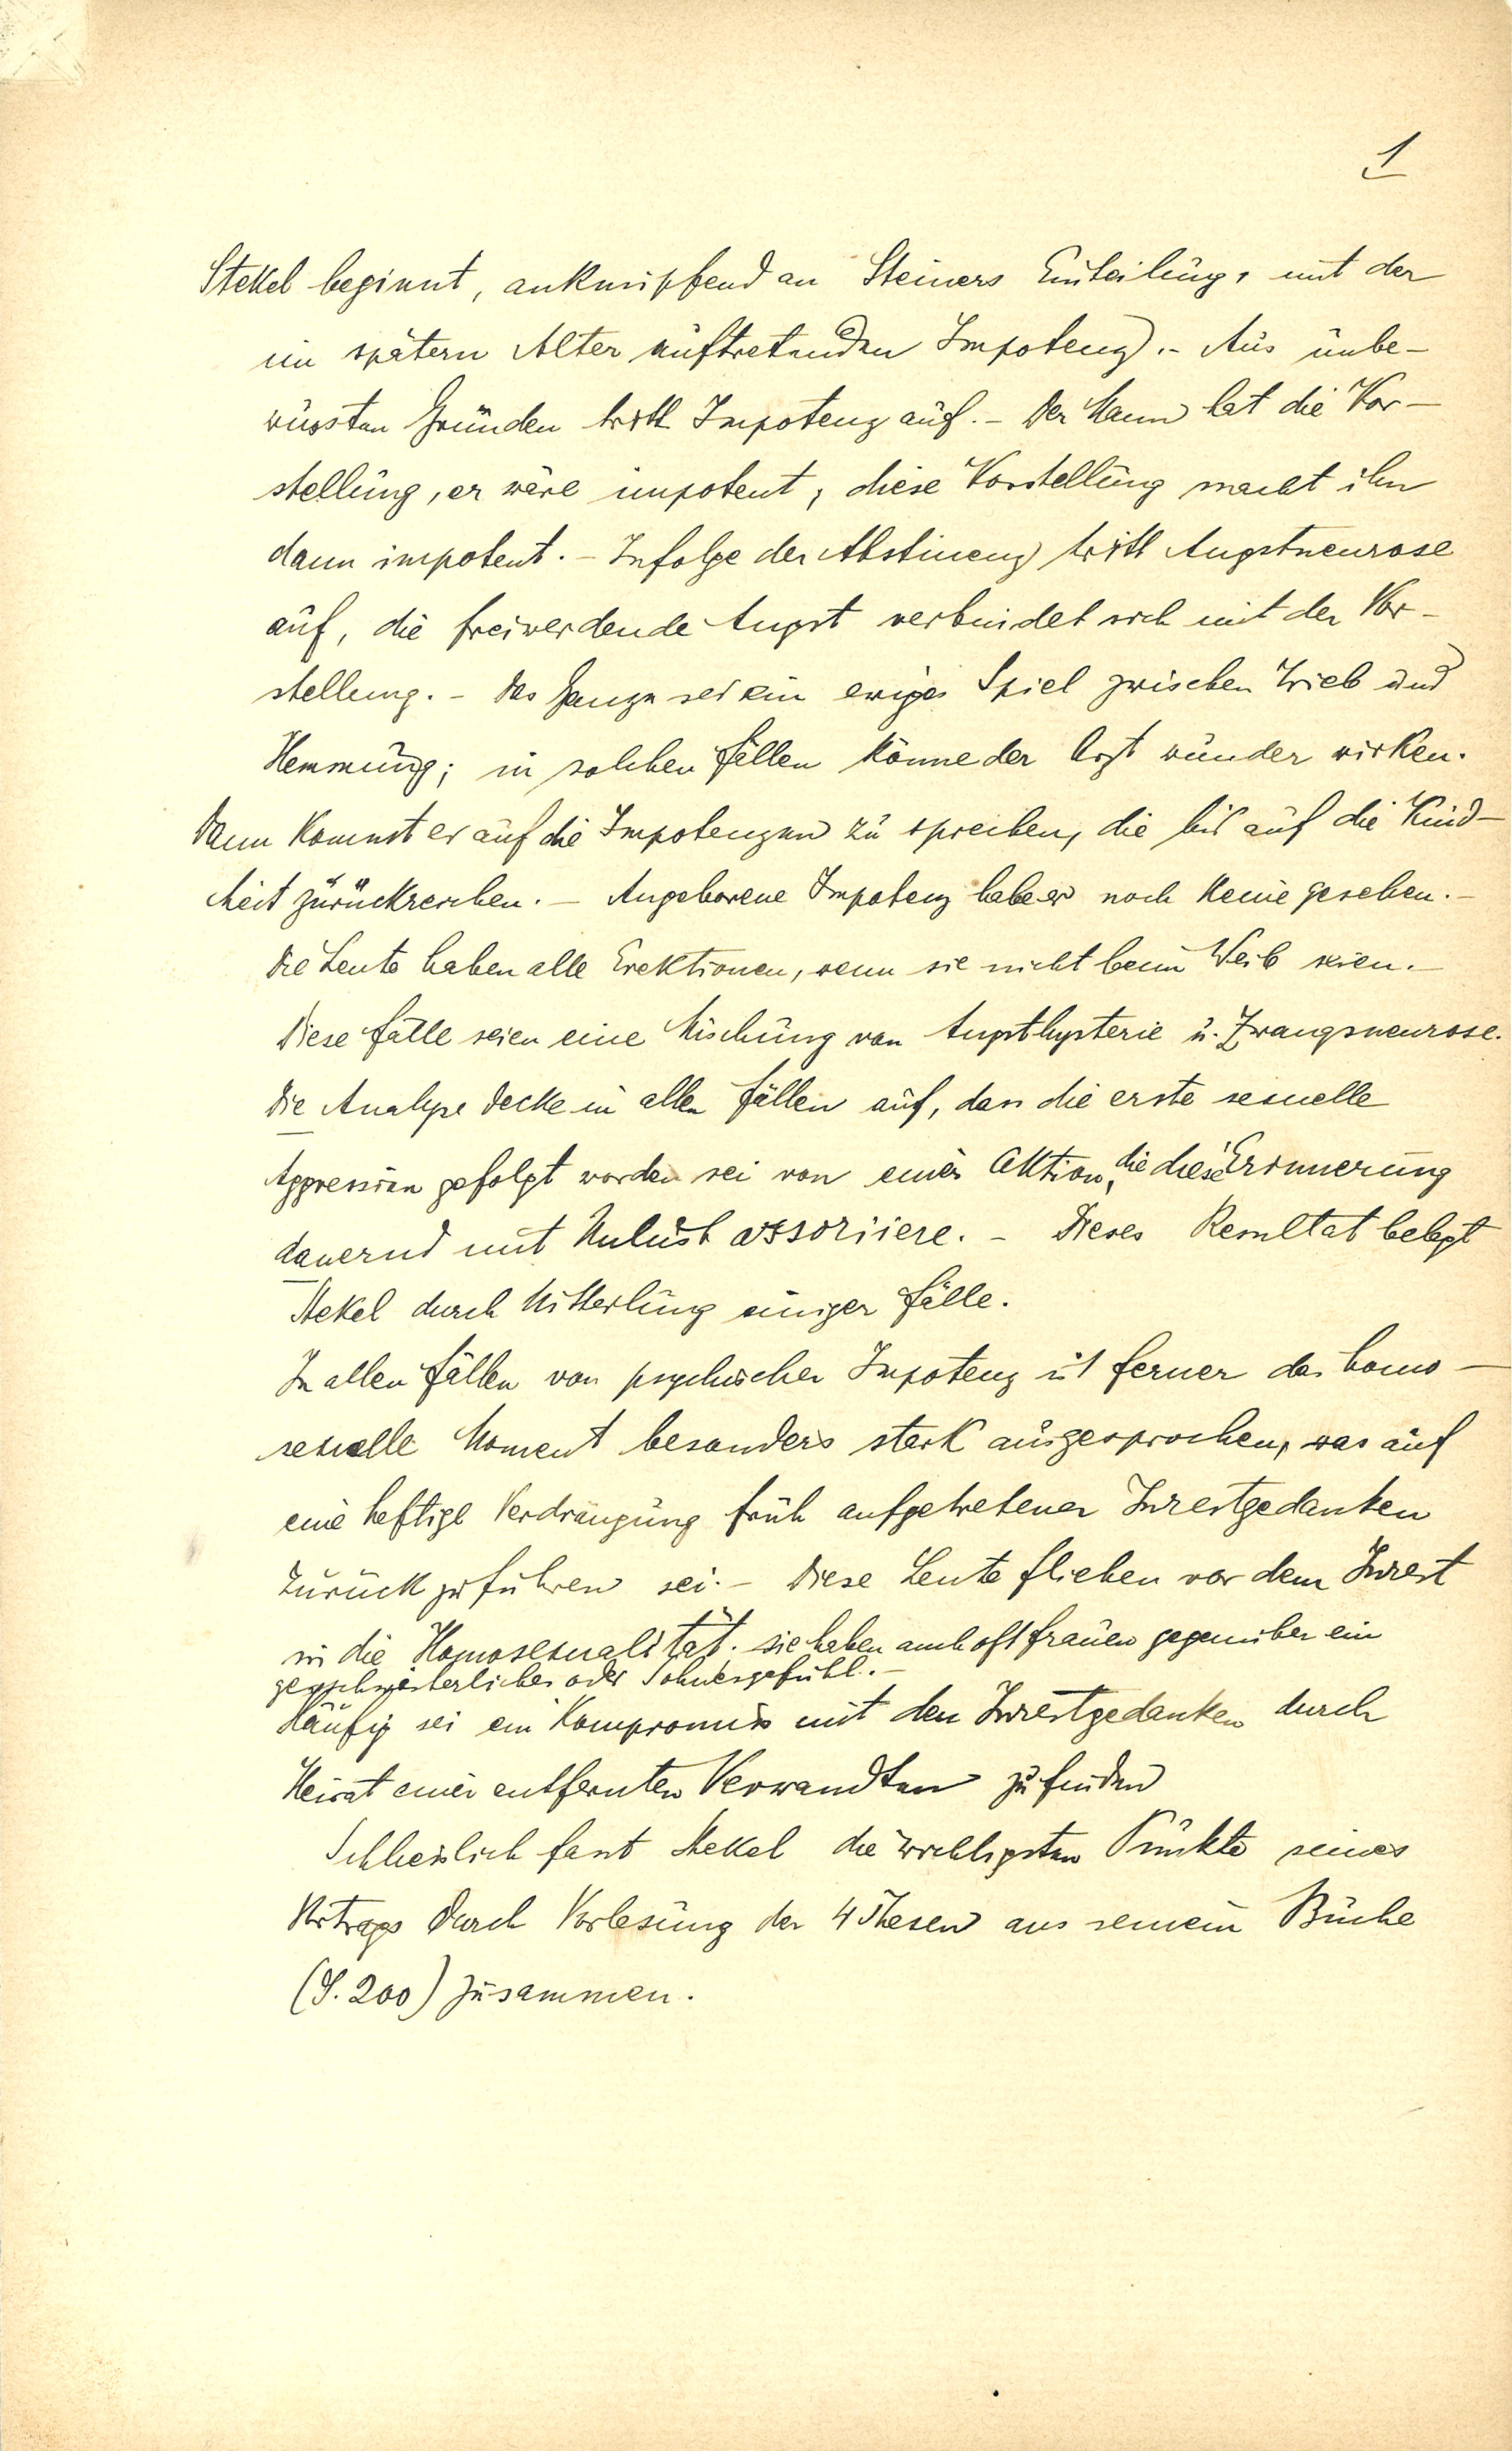 1
Stekel beginnt, anknüpfend an Steiners Einteilung, mit der
im spätern Alter auftretenden Impotenz. – Aus unbe-
wussten Gründen tritt Impotenz auf. – Der Mann hat die Vor-
stellung, er wäre impotent; diese Vorstellung macht ihn
dann impotent. – Infolge der Abstinenz tritt Angstneurose
auf, die freiwerdende Angst verbindet sich mit der Vor-
stellung. – Das Ganze sei ein ewiges Spiel zwischen Trieb und
Hemmung; in solchen Fällen könne der Arzt wunder wirken.
Dann kommt er auf die Impotenzen zu sprechen, die bis auf die Kind-
heit zurückreichen. – Angeborene Impotenz habe er noch keine gesehen. –
Die Leute haben alle Erektionen, wenn sie nicht beim Weib seien. –
Diese Fälle seien eine Mischung von Angsthysterie u. Zwangsneurose.
Die Analyse decke in allen Fällen auf, dass die erste sexuelle
Aggression gefolgt worden sei von einer Aktion, die diese Erinnerung
dauernd mit Unlust assoziiere. – Dieses Resultat belegt
Stekel durch Mitteilung einiger Fälle.
In allen Fällen von psychischer Impotenz ist ferner das homo-
sexuelle Moment besonders stark ausgesprochen, was auf
eine heftige Verdrängung früh aufgetretener Inzestgedanken
zurück zu führen sei. – Diese Leute fliehen vor dem Inzest
in die Homosexualität. sie haben auch oft Frauen gegenüber ein
geschwisterliches oder Sohnesgefühl. –
Häufig sei ein Kompromiss mit den Inzestgedanken durch
Heirat einer entfernten Verwandten zu finden
Schliesslich fasst Stekel die wichtigsten Punkte seines
Vortrags durch Vorlesung der 4 Thesen aus seinem Buche
(S. 200) zusammen.